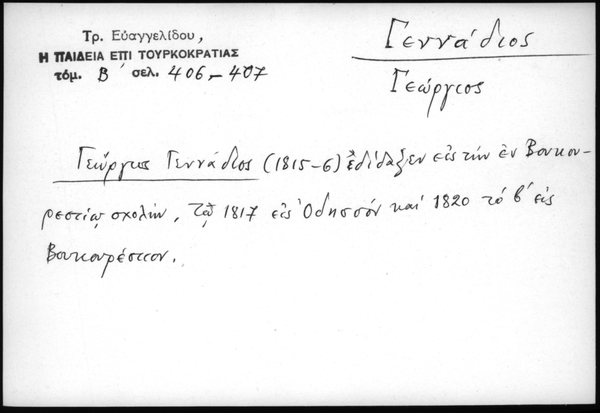 Τρ. Εὐαγγελίδου,
Η ΠΑΙΔΕΙΑ ΕΠΙ ΤΟΥΡΚΟΚΡΑΤΙΑΣ
τόμ. Β΄ σελ. 406-407
Γεννάδιος
Γεώργιος
Γεώργιος Γεννάδιος (1815-6) ἐδίδαξεν εἰς τὴν ἐν Βουκου-
ρεστίῳ σχολήν, τῷ 1817 εἰς Ὀδησσόν καί 1820 τό β΄ εἰς
Βουκουρέστιον.